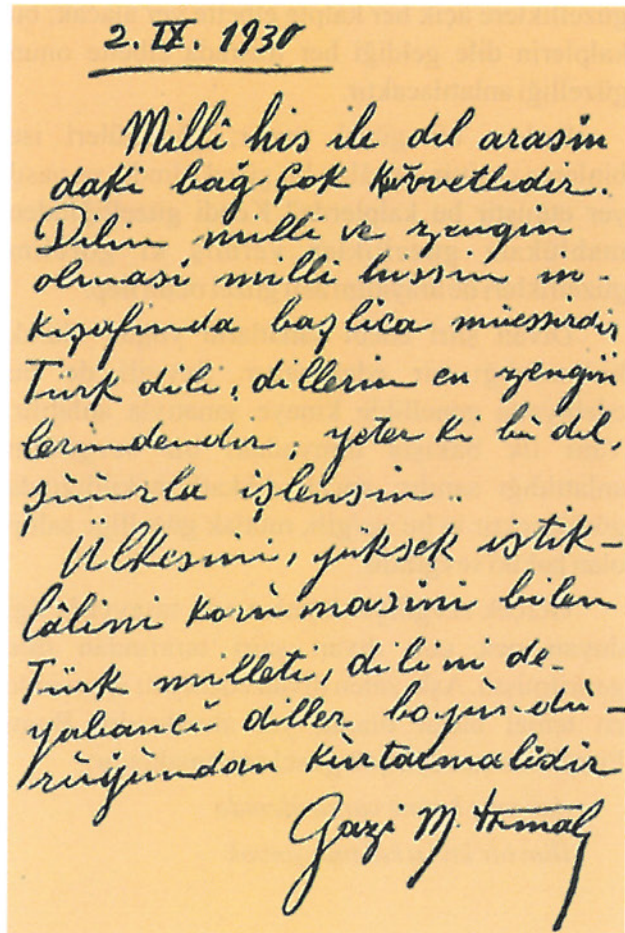 2. IX. 1930
Milli his ile dil arasin
daki bağ çok kuvvetlidir.
Dilin milli ve zengin
olmasi milli hissin in-
kişafinda başlica müessirdir
Türk dili, dillerin en zengin
lerindendir; yeter ki bu dil,
şuurla işlensin.
Ulkesini, yuksek istik-
lâlini korumasini bilen
Türk milleti, dilini de
yabanci diller boyundu-
ruğundan kurtarmalidir
Gazi M. Kemal